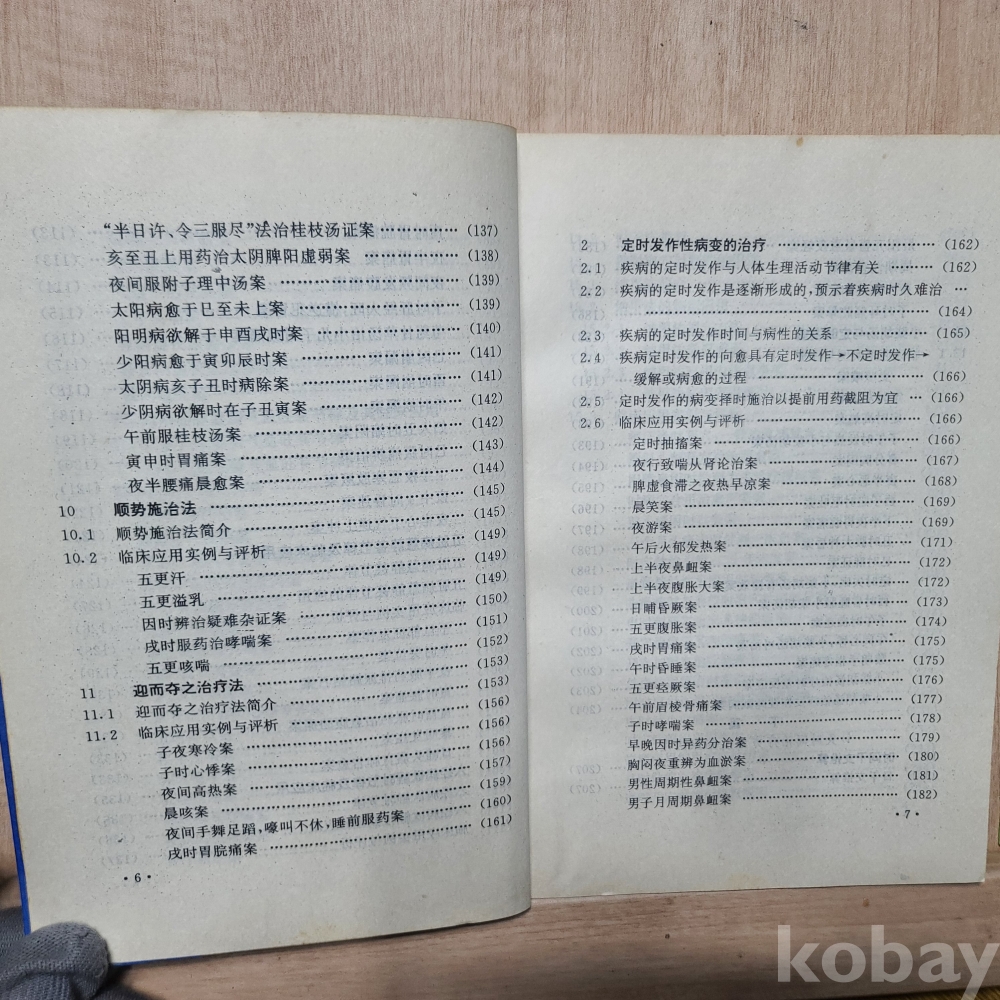 “半日许、令三服尽”法治桂枝汤证案 ………… (137)
亥至丑上用药治太阴脾阳虚弱案 ………… (138)
夜间服附子理中汤案 ………… (139)
太阳病愈于已至未上案 ………… (139)
阳明病欲解于申酉戌时案 ………… (140)
少阳病愈于寅卯辰时案 ………… (141)
太阴病亥子丑时病除案 ………… (141)
少阴病欲解时在子丑寅案 ………… (142)
午前服桂枝汤案 ………… (142)
寅申时胃痛案 ………… (143)
夜半腰痛晨愈案 ………… (144)
10 顺势施治法 ………… (145)
10.1 顺势施治法简介 ………… (145)
10.2 临床应用实例与评析 ………… (149)
五更汗 ………… (149)
五更溢乳 ………… (149)
因时辨治疑难杂证案 ………… (150)
戌时服药治哮喘案 ………… (151)
五更咳喘 ………… (152)
11 迎而夺之治疗法 ………… (153)
11.1 迎而夺之治疗法简介 ………… (153)
11.2 临床应用实例与评析 ………… (156)
子夜寒冷案 ………… (156)
子时心悸案 ………… (156)
夜间高热案 ………… (157)
晨咳案 ………… (159)
夜间手舞足蹈，嚎叫不休，睡前服药案 ………… (160)
戌时胃脘痛案 ………… (161)
· 6 ·
2 定时发作性病变的治疗 ………… (162)
2.1 疾病的定时发作与人体生理活动节律有关 ……… (162)
2.2 疾病的定时发作是逐渐形成的，预示着疾病时久难治 …
………… (164)
2.3 疾病的定时发作时间与病性的关系 ………… (165)
2.4 疾病定时发作的向愈具有定时发作→不定时发作→
缓解或病愈的过程 ………… (166)
2.5 定时发作的病变择时施治以提前用药截阻为宜 … (166)
2.6 临床应用实例与评析 ………… (166)
定时抽搐案 ………… (166)
夜行致喘从肾论治案 ………… (167)
脾虚食滞之夜热早凉案 ………… (168)
晨笑案 ………… (169)
夜游案 ………… (169)
午后火郁发热案 ………… (171)
上半夜鼻衄案 ………… (172)
上半夜腹胀大案 ………… (172)
日晡昏厥案 ………… (173)
五更腹胀案 ………… (174)
戌时胃痛案 ………… (175)
午时昏睡案 ………… (175)
五更痉厥案 ………… (176)
午前眉棱骨痛案 ………… (177)
子时哮喘案 ………… (178)
早晚因时异药分治案 ………… (179)
胸闷夜重辨为血淤案 ………… (180)
男性周期性鼻衄案 ………… (181)
男子月周期鼻衄案 ………… (182)
· 7 ·
kobay